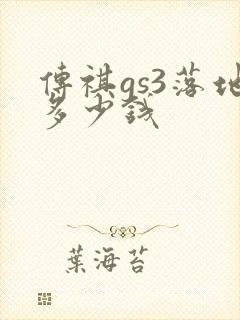 傳祺gs3落地
多少錢
葉海苔